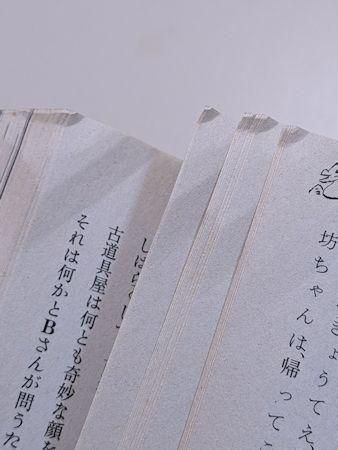 ょうてえ
坊ちゃんは、帰ってこ
しばらくし
古道具屋は何とも奇妙な顔を
それは何かとBさんが問うた